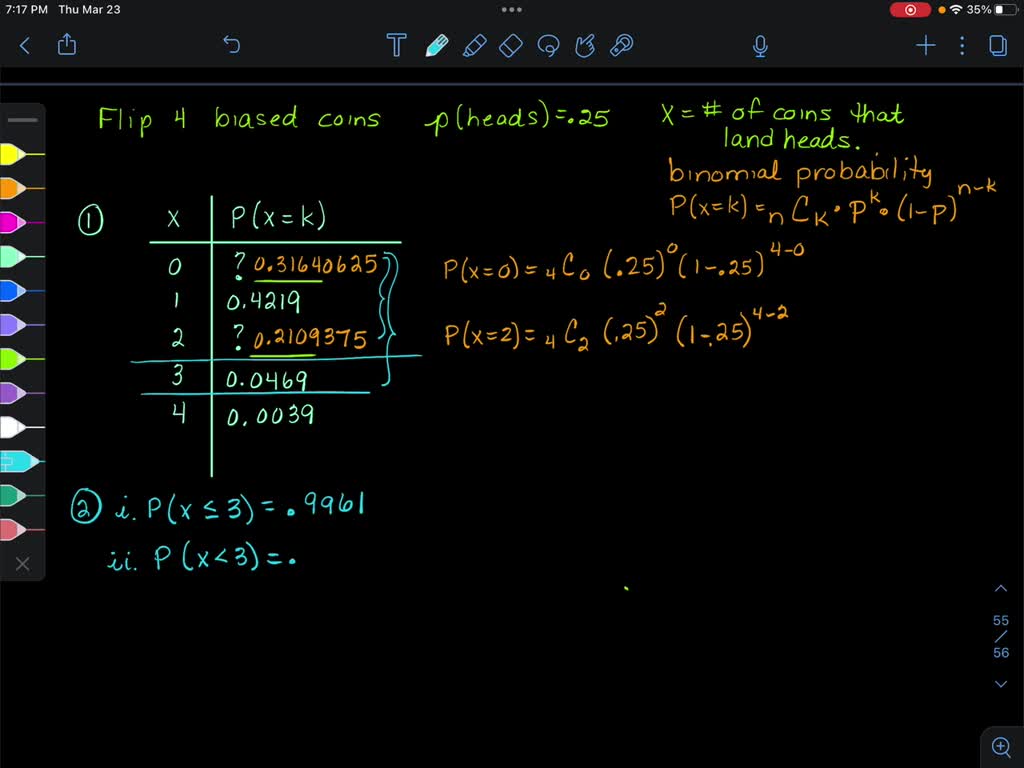 7:17 PM Thu Mar 23
35%
Flip 4 biased coins p(heads)=.25
X = # of coins that
land heads.
binomial probability
P(x=k) = nCk • p^k • (1-p)^n-k
①
x P(x=k)
0 ? 0.31640625
1 0.4219
2 ? 0.2109375
3 0.0469
4 0.0039
P(x=0) = 4C0 (.25)^0 (1-.25)^4-0
P(x=2) = 4C2 (.25)^2 (1-.25)^4-2
② i. P(x ≤ 3) = .9961
ii. P(x < 3) = .
55
/
56